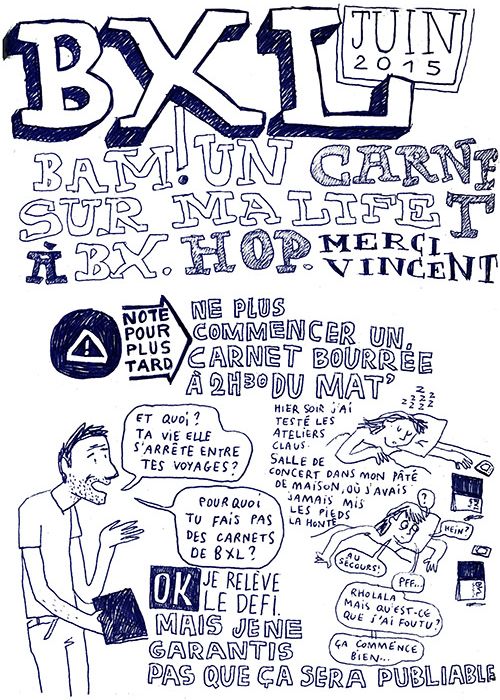 BXL
JUIN
2015
BAM! UN CARNET
SUR MA LIFE
À BX. HOP. MERCI
VINCENT
NOTE
POUR
PLUS
TARD
NE PLUS
COMMENCER UN
CARNET BOURRÉE
À 2H30 DU MAT'
ET QUOI?
TA VIE ELLE
S'ARRÊTE ENTRE
TES VOYAGES?
POURQUOI
TU FAIS PAS
DES CARNETS
DE BXL?
OK JE RELÈVE
LE DEFI.
MAIS JE NE
GARANTIS
PAS QUE ÇA SERA PUBLIABLE
HIER SOIR J'AI
TESTÉ LES
ATELIERS
CLAUS.
SALLE DE
CONCERT DANS MON PÂTÉ
DE MAISON, OÙ J'AVAIS
JAMAIS MIS
LES PIEDS
LA HONTE
Z Z Z Z Z Z
?
HEIN?
AU
SECOURS!
PFF...
RHOLALA
MAIS QU'EST-CE
QUE J'AI FOUTU?
ÇA COMMENCE
BIEN...